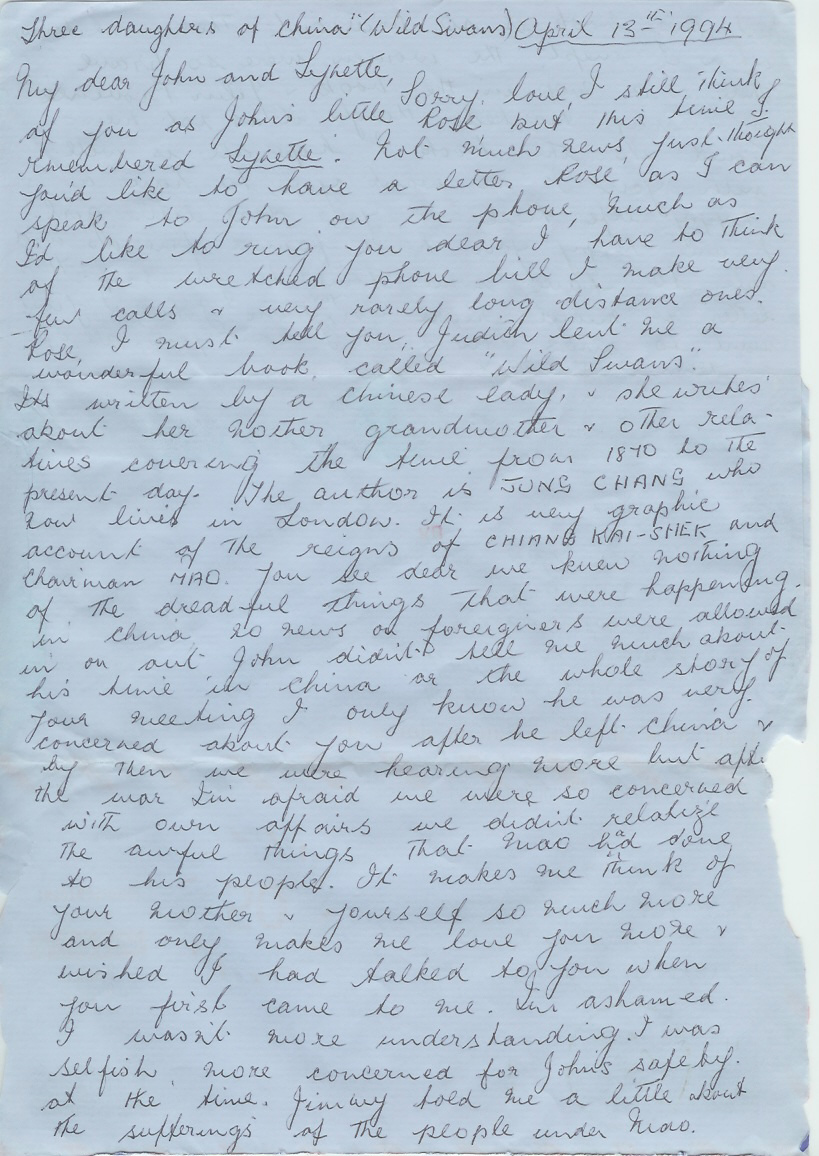 Three daughters of China" (Wild Swans) April 13th 1994
My dear John and Lynette,
Sorry, love, I still think
of you as John's little Rose but this time I
rmembered Lynette. Not much news, just thought
you'd like to have a letter Rose, as I can
speak to John on the phone, much as
I'd like to ring you dear I have to think
of the wretched phone bill I make very
few calls & very rarely long distance ones.
Rose, I must tell you, Judith lent me a
wonderful book, called "Wild Swans".
Its written by a Chinese lady, & she writes
about her Mother grandmother & other rela-
tives covering the time from 1870 to the
present day. The author is JUNG CHANG who
now lives in London. It is very graphic
account of the reigns of CHIANG KAI-SHEK and
Chairman MAO. You see dear we knew nothing
of the dreadful things that were happening
in China, no news or foreigners were allowed
in or out John didn't tell me much about
his time in China or the whole story of
your meeting I only know he was very
concerned about you after he left China &
by then we were hearing more but afte
the war I'm afraid we were so concerned
with own affairs we didnt relalize
the awful things that Mao had done
to his people. It makes me think of
your Mother & yourself so much more
and only makes me love you more &
wished I had talked to you when
you first came to me. I'm ashamed.
I wasn't more understanding. I was
selfish, more concerned for John's safety.
at the time. Jimmy told me a little about
the sufferings of the people under Mao.